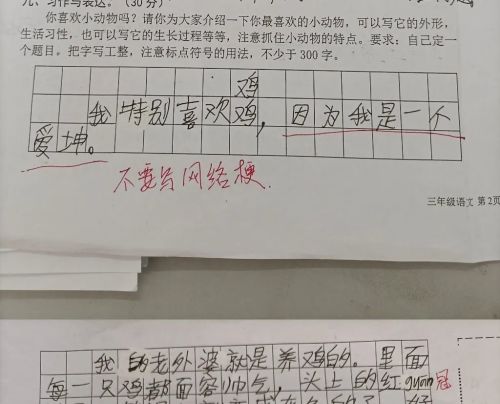 九、习作与表达。（30分）
你喜欢小动物吗？请你为大家介绍一下你最喜欢的小动物，可以写它的外形，
生活习性，也可以写它的生长过程等等，注意抓住小动物的特点。要求：自己定一
个题目。把字写工整，注意标点符号的用法，不少于300字。
鸡
我特别喜欢鸡，因为我是一个
爱坤。
不要写网络梗.
三年级语文 第2页
我的老外婆就是养鸡的。里面
每一只鸡都面容帅气，头上的红guān冠